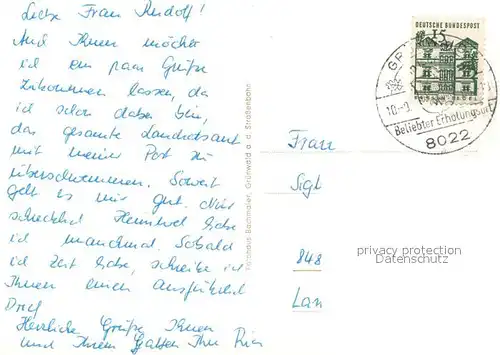 Liebe Frau Rudolf!
Auch Ihnen möchte
ich ein paar Grüße
zukommen lassen, da
ich schon dabei bin,
das gesamte Landratsamt
mit meiner Post zu
überschwemmen. Soweit
geht es mir gut. Nur
schrecklich Heimweh habe
ich manchmal. Sobald
ich Zeit habe, schreibe ich
Ihnen einen ausführlich
Brief
Herzliche Grüße Ihnen
und Ihrem Gatten Ihre
Forsthaus Bachmaier, Grünwald a. d. Straßenbahn
DEUTSCHE BUNDESPOST
15
10.-9
Beliebter Erholungsort
8022
Frau
Sigl
privacy protection
Datenschutz
848
Lan